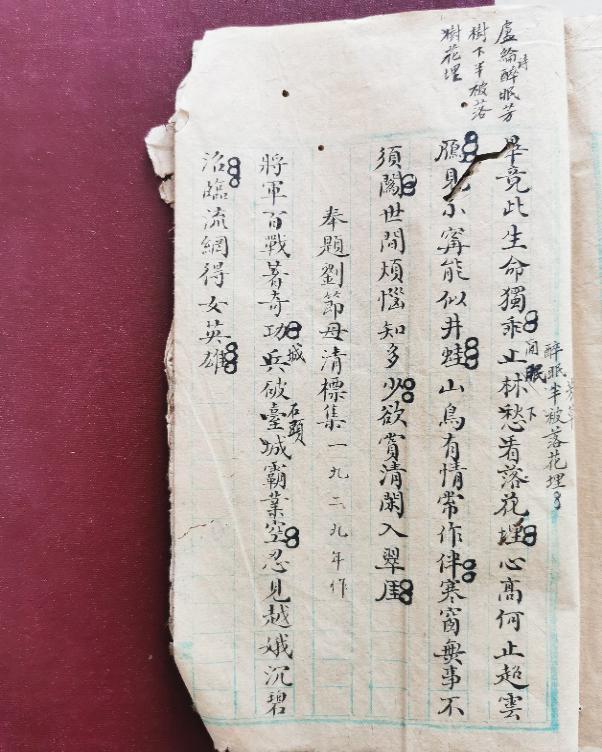 盧綸詩醉眠芳
樹下半被落
樹花埋
醉眠半被落花埋
畢竟此生命獨乖止林愁看落花埋心高何止超雲
閒眠下
鴈見小寗能似井蛙山鳥有情常作伴寒窗無事不
須關世間煩惱知多少欲賞清閑入翠厓
奉題劉節母清標集一九二九年作
城
石頭
將軍百戰著奇功兵破臺城霸業空忍見越娥沉碧
沼臨流網得女英雄